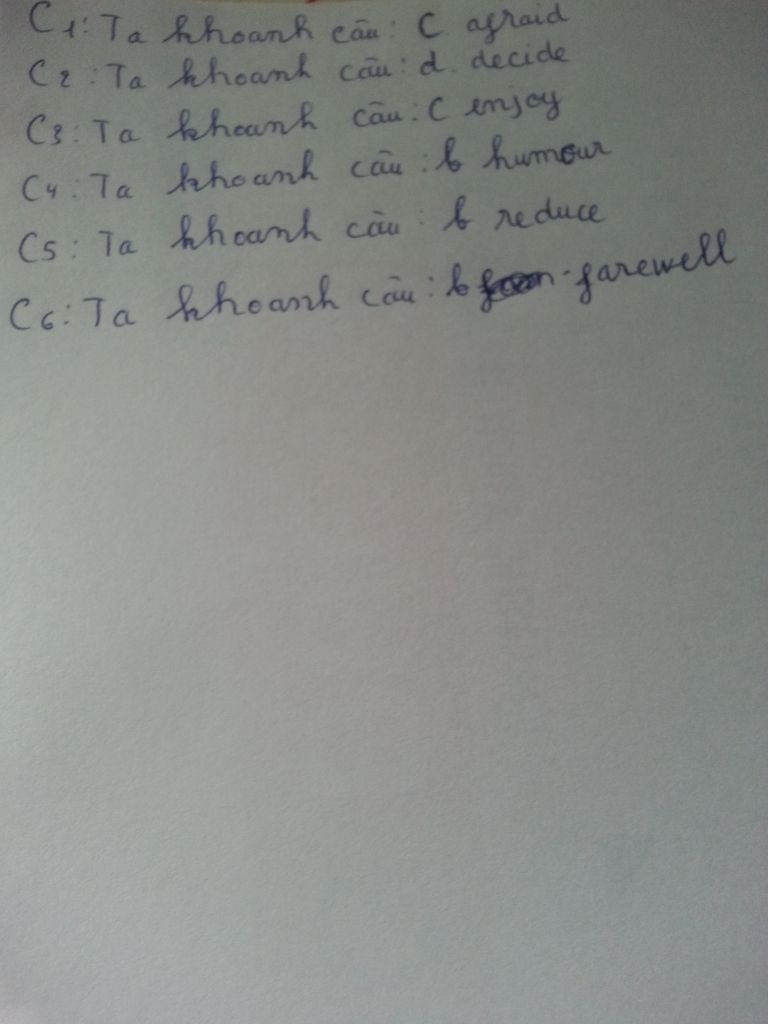 C1: Ta khoanh câu: C. afraid
C2: Ta khoanh câu: d. decide
C3: Ta khoanh câu: C enjoy
C4: Ta khoanh câu: b humour
C5: Ta khoanh câu: b reduce
C6: Ta khoanh câu: b farewell